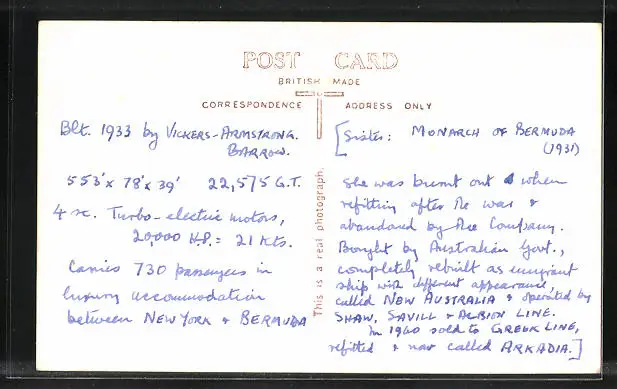 POST CARD
BRITISH MADE
CORRESPONDENCE
ADDRESS ONLY
Blt. 1933 by VICKERS-ARMSTRONG.
BARROW.
553' x 78' x 39' 22,575 G.T.
4 sc. Turbo-electric motors,
20,000 H.P. = 21 kts.
Carries 730 passengers in
luxury accommodation
between NEW YORK & BERMUDA
This is a real photograph.
[Sister: MONARCH OF BERMUDA
(1931)
She was burnt out when
refitting after the war &
abandoned by the Company.
Bought by Australian Govt.,
completely rebuilt as emigrant
ship with different appearance,
called NEW AUSTRALIA & operated by
SHAW, SAVILL & ALBION LINE.
In 1960 sold to GREEK LINE,
refitted & now called ARKADIA.]